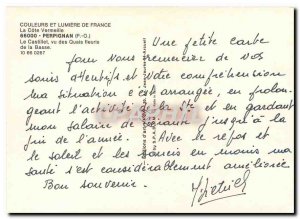 COULEURS ET LUMIÈRE DE FRANCE
La Côte Vermeille
66000 - PERPIGNAN (P.-O.)
Le Castillet, vu des Quais fleuris
de la Basse.
10 66 0267
Une petite carte
pour vous remercier de vos
soins attentifs et votre compréhension
ma situation s'est arrangée, en prolon-
geant l'activité de la Sté et en gardant
mon salaire de gérant jusqu'à la
fin de l'année. Avec le repos et
le soleil et les soucis en moins ma
santé s'est considérablement améliorée
Bon souvenir.